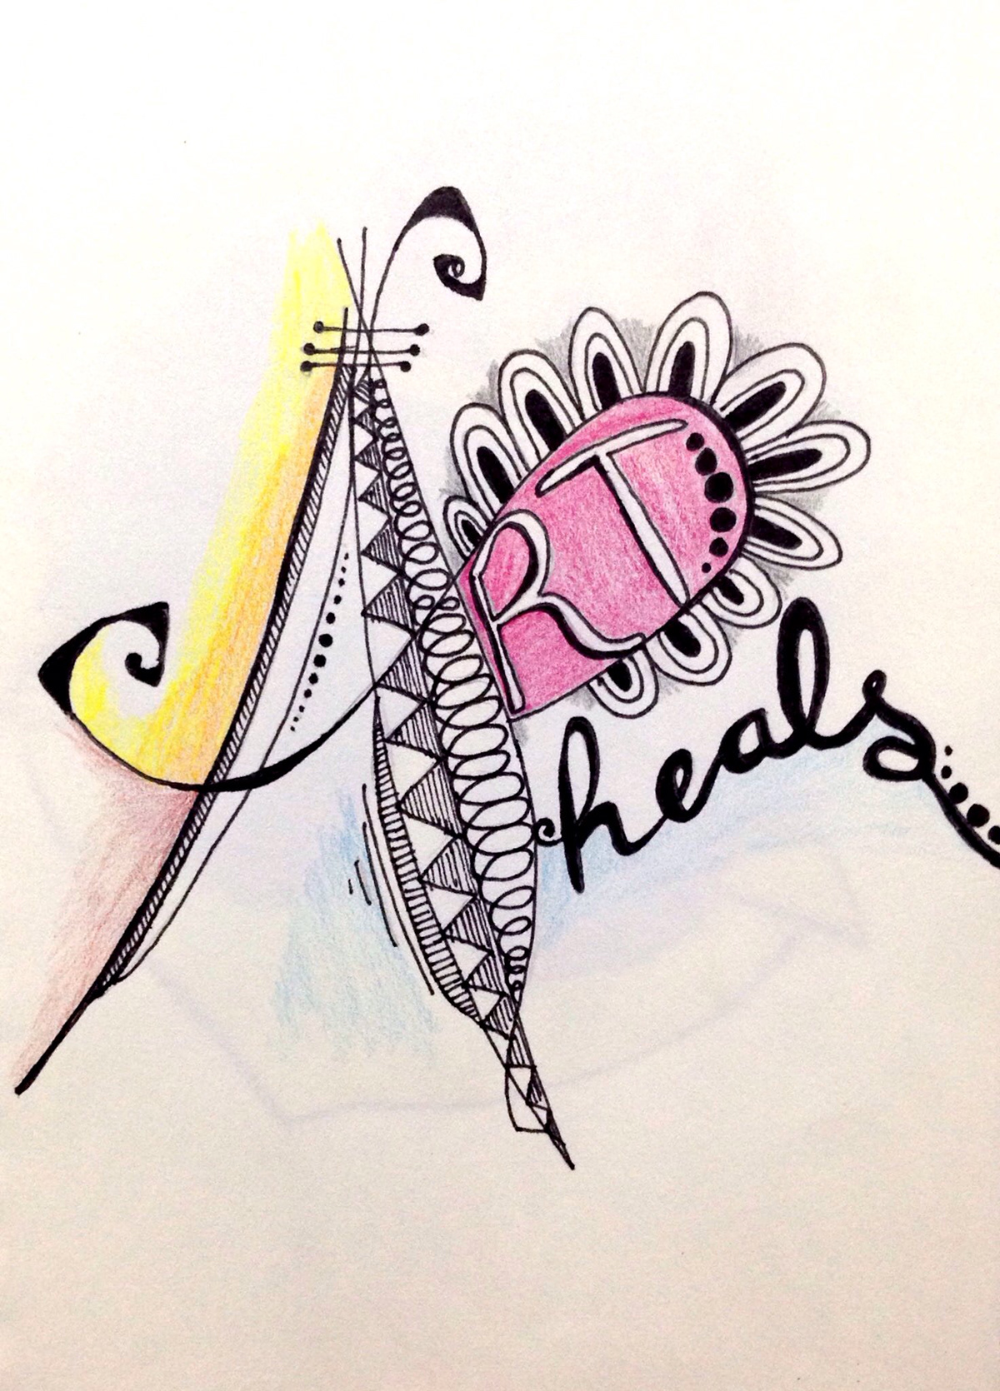 ART
heals